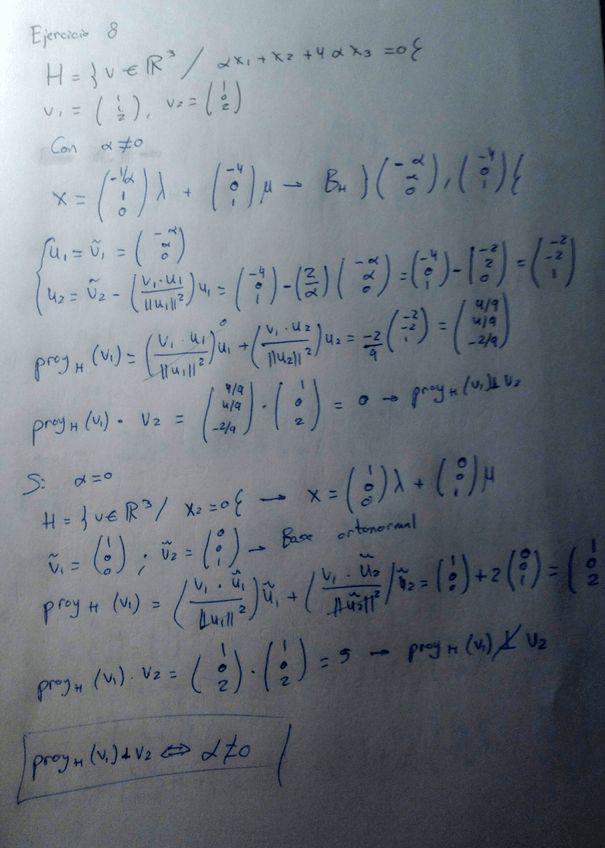 Ejercicio 8
H = } v ∈ ℝ³ / αx₁ + x₂ + 4αx₃ = 0 {
v₁ = (1 1 2), v₂ = (1 0 2)
Con α≠0
x = (-1/α 1 0) λ + (-4 0 1) μ → B_H } (-α α 0), (-4 0 1) {
{ u₁ = ṽ₁ = (-α α 0)
u₂ = ṽ₂ - (v₁·u₁ / ||u₁||²) u₁ = (-4 0 1) - (2/α) (-α α 0) = (-4 0 1) - (-2 2 0) = (-2 -2 1)
proy_H (v₁) = (v₁·u₁ / ||u₁||²)⁰ u₁ + (v₁·u₂ / ||u₂||²) u₂ = -2/9 (-2 -2 1) = (4/9 4/9 -2/9)
proy_H (v₁) · v₂ = (4/9 4/9 -2/9) · (1 0 2) = 0 → proy_H (v₁) ⊥ v₂
Si α=0
H = } v ∈ ℝ³ / x₂ = 0 { → x = (1 0 0) λ + (0 0 1) μ
ṽ₁ = (1 0 0) ; ṽ₂ = (0 0 1) → Base ortonormal
proy_H (v₁) = (v₁·ũ₁ / ||u₁||²) ũ₁ + (v₁·ũ₂ / ||ũ₂||²) ũ₂ = (1 0 0) + 2 (0 0 1) = (1 0 2)
proy_H (v₁) · v₂ = (1 0 2) · (1 0 2) = 5 → proy_H (v₁) ⊥̸ v₂
proy_H (v₁) ⊥ v₂ ⇔ α≠0